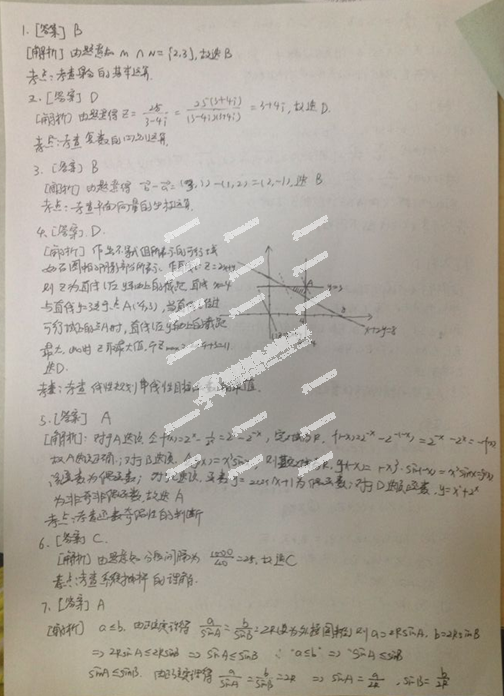 1. [答案] B
[解析] 由题意知 M∩N={2,3}, 故选B
考点: 考查集合的基本运算.
2. [答案] D
[解析] 由题意得 Z = 25/(3-4i) = 25(3+4i)/((3-4i)(3+4i)) = 3+4i, 故选D.
考点: 考查复数的四则运算.
3. [答案] B
[解析] 由题意得 b-a=(3,1)-(1,2)=(2,-1), 选 B
考点: 考查平面向量的坐标运算.
4. [答案] D.
[解析] 作出不等式组所表示的可行域
如右图阴影部分所示, 作直线 Z=2x+y
则Z为直线在y轴上的截距 直线 x=4
与直线y=3交于点A(4,3), 当直线经过
可行域上的点A时, 直线在y轴上的截距
最大, 此时Z取最大值, 4+3=11.
选D.
x+2y=8
考点: 考查线性规划中线性目标
5. [答案] A
[解析] 对于A选项 2^x-2^-x, 定义域为R, f(-x)=2^-x-2^-(-x)=2^-x-2^x=-f(x)
故A选项正确; 对于B选项
函数为偶函数; y=2cos2x+1为偶函数; 对于D选项函数 y=x²+2^x
为非奇非偶函数, 故选 A
考点: 考查函数奇偶性的判断
6. [答案] C.
[解析] 由题意知 分段间隔为 1000/40=25, 故选C
考点: 考查系统抽样的理解.
7. [答案] A
[解析] a≤b, 由正弦定理得 a/sinA = b/sinB = 2R (R为外接圆半径) 则 a=2RsinA, b=2RsinB
⇒ 2RsinA≤2RsinB ⇒ sinA≤sinB ∴ "a≤b" ⇒ "sinA≤sinB
sinA≤sinB. 由正弦定理得 a/sinA = b/sinB = 2R ⇒ sinA = a/2R, sinB = b/2R